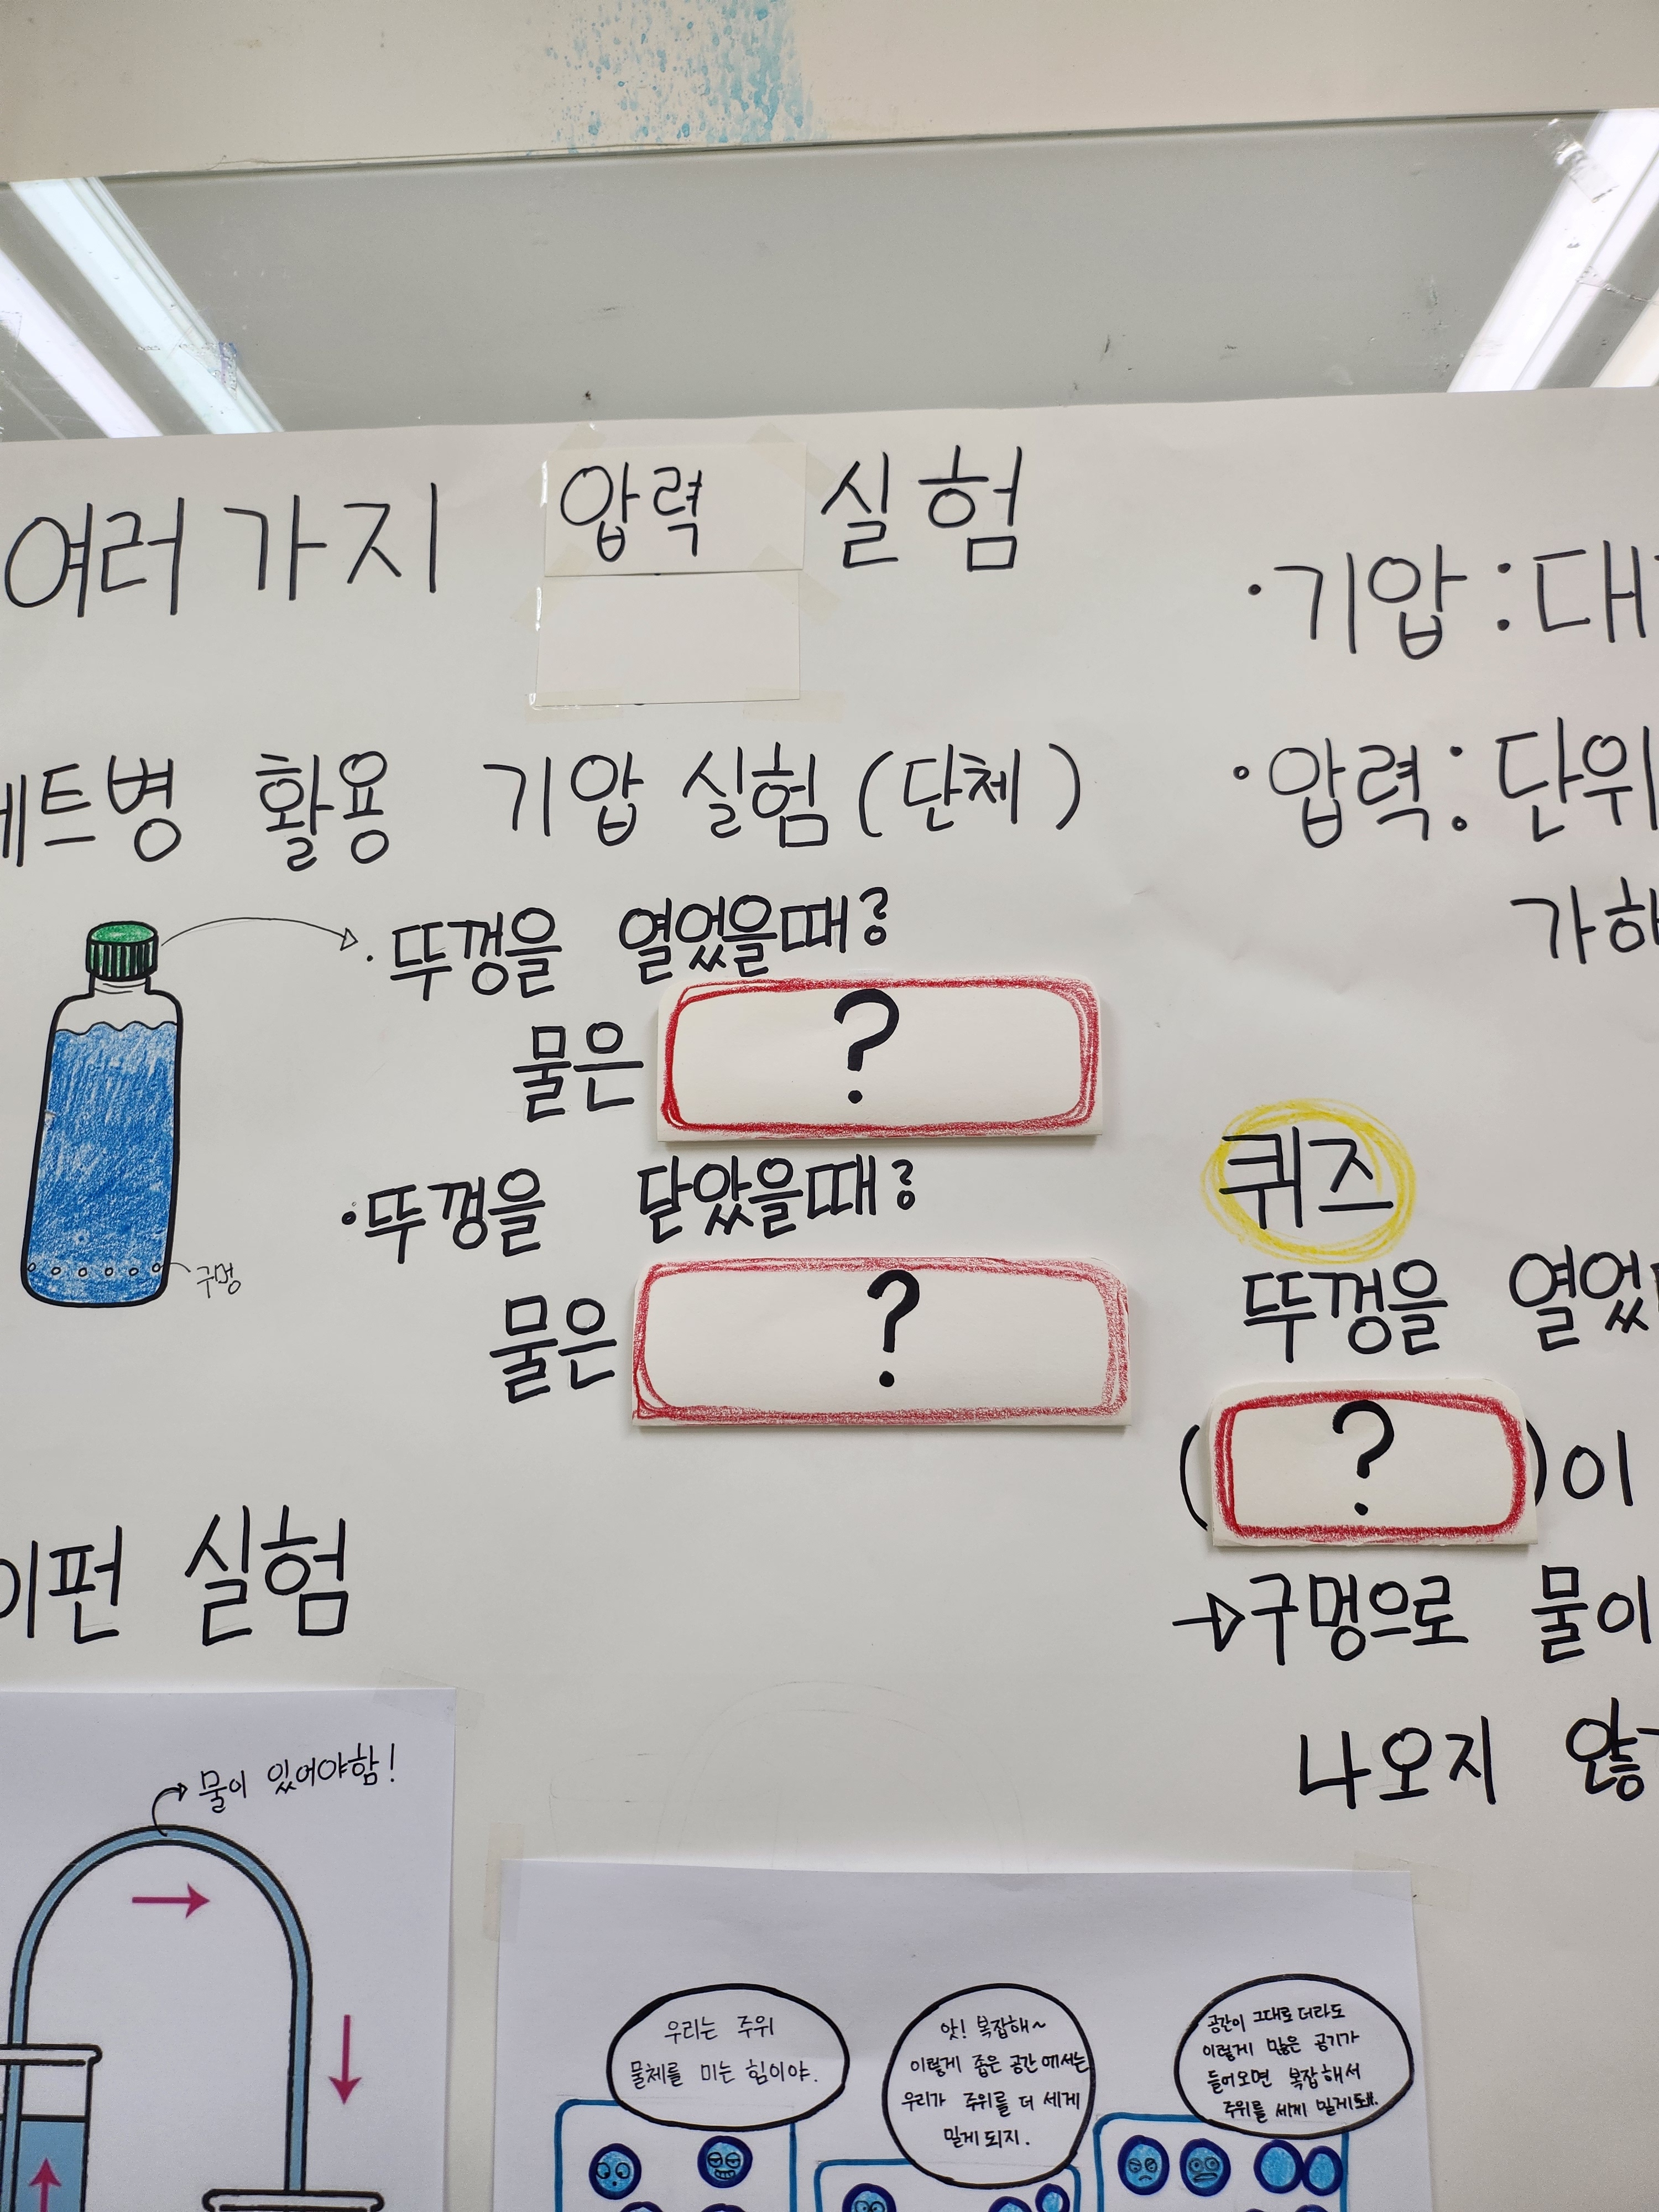 여러가지 압력 실험
페트병 활용 기압 실험 (단체)
뚜껑을 열었을때?
물은 ?
뚜껑을 닫았을때?
물은 ?
구멍
이펀 실험
물이 있어야함!
우리는 주위
물체를 미는 힘이야.
앗! 복잡해~
이렇게 좁은 공간에서는
우리가 주위를 더 세게
밀게 되지.
공간이 그대로더라도
이렇게 많은 공기가
들어오면 복잡해서
주위를 세게 밀게돼.
· 기압 : 대
· 압력 : 단위
가하
퀴즈
뚜껑을 열었
( ? )이
→구멍으로 물이
나오지 않